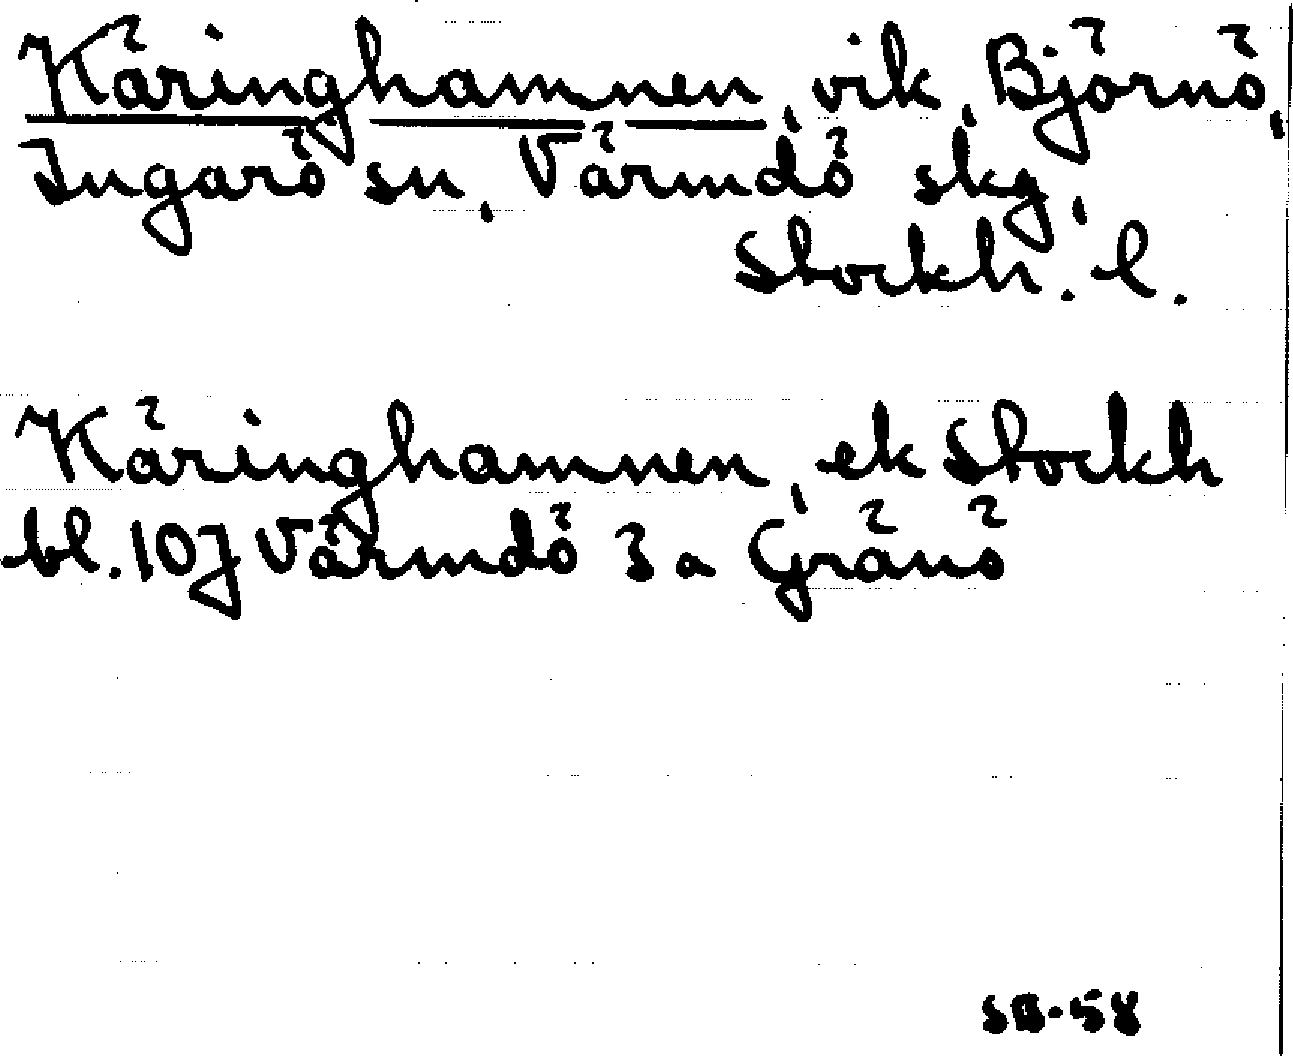 Käringhamnen, vik, Björnö,
Ingarö sn, Värmdö skg,
Stockh. l.
Käringhamnen, ek Stockh
bl. 10J Värmdö 3a Gränö
SB-58